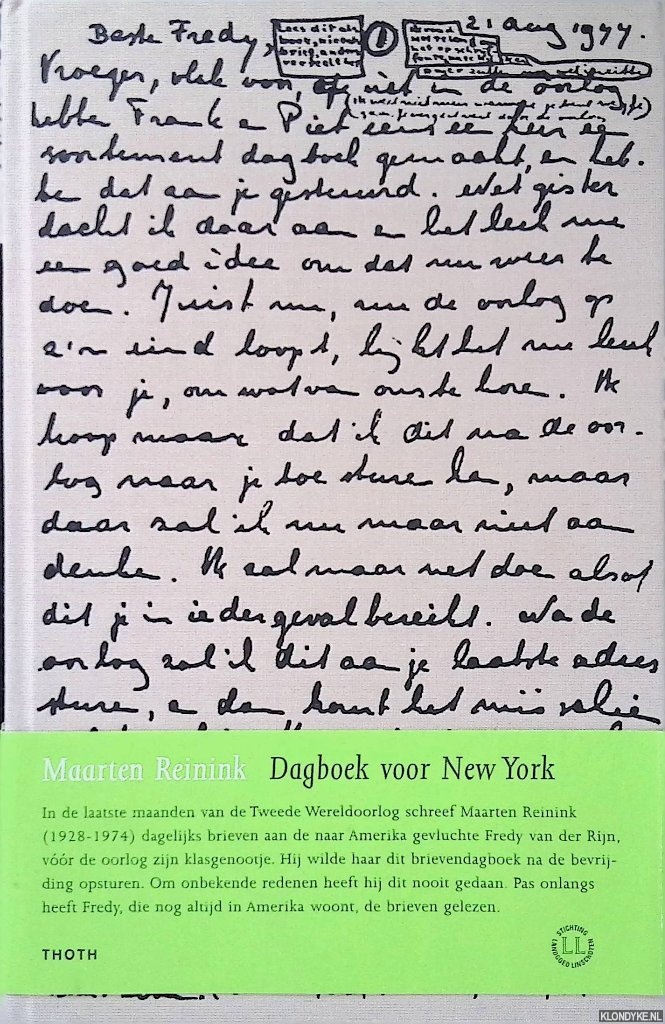 Beste Fredy,
1
21 aug 1944.
Vroeger, vlak voor, of net in de oorlog
hebben Frank en Piet eens een keer een
soortement dagboek gemaakt, en heb-
be dat aan je gestuurd. Net gister
dacht ik daar aan en het leek me
een goed idee om dat nu weer te
doen. Juist nu, nu de oorlog op
z'n eind loopt, lijkt het me leuk
voor je, om wat van ons te hore. Ik
hoop maar dat ik dit na de oor-
log naar je toe sture kan, maar
daar zal ik nu maar niet aan
denke. Ik zal maar net doen alsof
dit je in ieder geval bereikt. Na de
oorlog zal ik dit aan je laatste adres
sture, en dan komt het misschien
Maarten Reinink Dagboek voor New York
In de laatste maanden van de Tweede Wereldoorlog schreef Maarten Reinink
(1928-1974) dagelijks brieven aan de naar Amerika gevluchte Fredy van der Rijn,
vóór de oorlog zijn klasgenootje. Hij wilde haar dit brievendagboek na de bevrij-
ding opsturen. Om onbekende redenen heeft hij dit nooit gedaan. Pas onlangs
heeft Fredy, die nog altijd in Amerika woont, de brieven gelezen.
THOTH
STICHTING
LL
LANDGOED LINSCHOTEN
KLONDYKE.NL